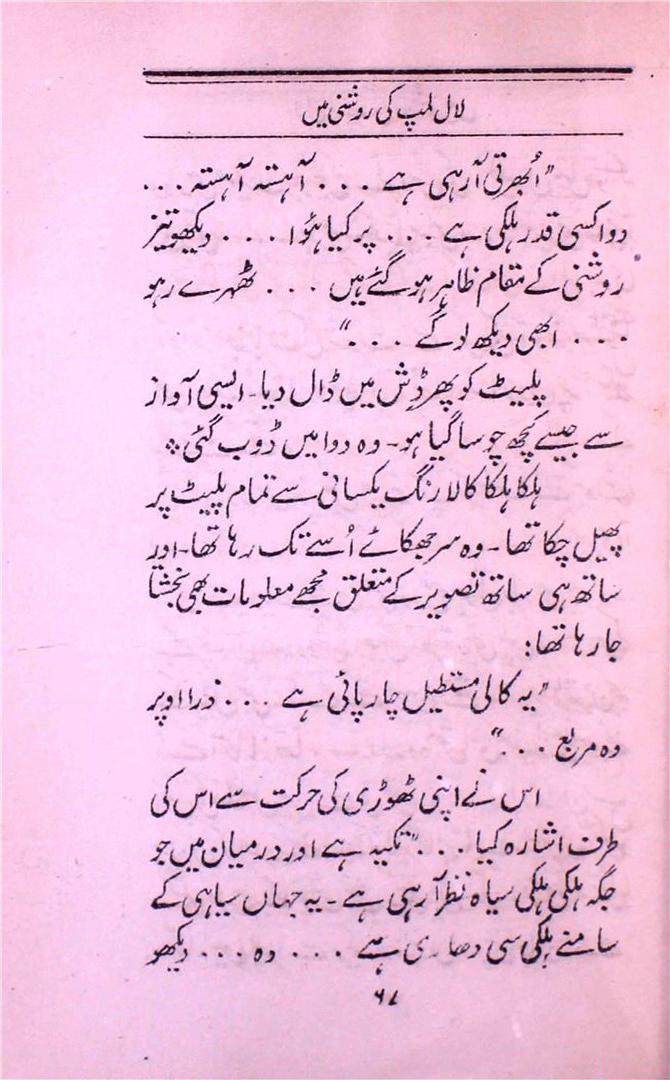 لال لمپ کی روشنی میں
"اُبھرتی آ رہی ہے ... آہستہ آہستہ ...
دوا کسی قدر ہلکی ہے ... پر کیا ہؤا ... دیکھو تیز
روشنی کے مقام ظاہر ہو گئے ہیں ... ٹھہرے رہو
... ابھی دیکھ لو گے ..."
پلیٹ کو پھر ڈِش میں ڈال دیا۔ ایسی آواز
سے جیسے کچھ چوسا گیا ہو۔ وہ دوا میں ڈوب گئی ⁘
ہلکا ہلکا کالا رنگ یکسانی سے تمام پلیٹ پر
پھیل چکا تھا۔ وہ سر جھکائے اُسے تک رہا تھا۔ اور
ساتھ ہی ساتھ تصویر کے متعلق مجھے معلومات بھی بخشتا
جا رہا تھا:
"یہ کالی مستطیل چارپائی ہے ... ذرا اوپر
وہ مربع ..."
اس نے اپنی ٹھوڑی کی حرکت سے اس کی
طرف اشارہ کیا ... "تکیہ ہے اور درمیان میں جو
جگہ ہلکی ہلکی سیاہ نظر آ رہی ہے۔ یہ جہاں سیاہی کے
سامنے ہلکی سی دھاری ہے ... وہ ... دیکھو
۶۸